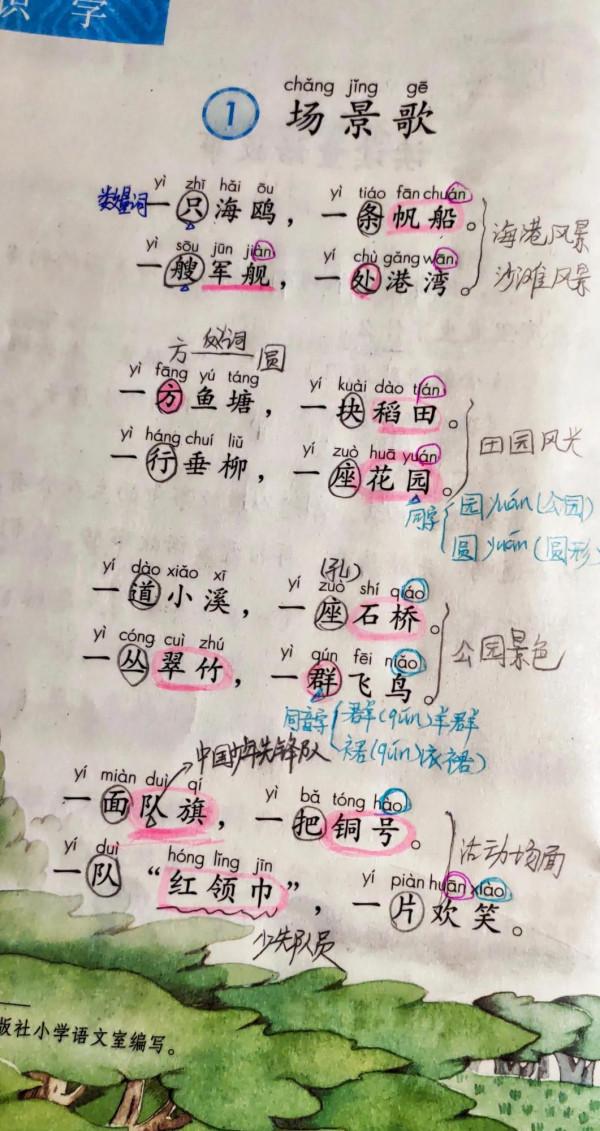 识字
chǎng jǐng gē
1 场景歌
yì zhī hǎi ōu yì tiáo fān chuán
数量词 一只海鸥，一条帆船。
海港风景
yì sōu jūn jiàn yí chù gǎng wān
一艘军舰，一处港湾。
沙滩风景
方 反义词 圆
yì fāng yú táng yí kuài dào tián
一方鱼塘，一块稻田。
田园风光
yì háng chuí liǔ yí zuò huā yuán
一行垂柳，一座花园。
同音字 园yuán(公园)
圆yuán(圆形)
(孔)
yí dào xiǎo xī yí zuò shí qiáo
一道小溪，一座石桥。
公园景色
yì cóng cuì zhú yì qún fēi niǎo
一丛翠竹，一群飞鸟。
同音字 群(qún)羊群
裙(qún)衣裙)
中国少年先锋队
yí miàn duì qí yì bǎ tóng hào
一面队旗，一把铜号。
活动场面
yí duì hóng lǐng jīn yí piàn huān xiào
一队“红领巾”，一片欢笑。
少先队员
版社小学语文室编写。